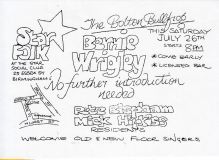 Star Folk
AT THE STAR SOCIAL CLUB
ESSEX ST
BIRMINGHAM
The Bolton Bullfrog
Bernie Wrigley
No further introduction needed
THIS/SATURDAY
JULY 26TH
STARTS 8PM
* COME EARLY
* LICENSED BAR
Mick
RESIDENTS
WELCOME OLD & NEW FLOOR SINGERS